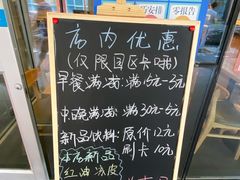 安排
零报告
店内优惠
(仅限园区卡哦)
早餐满减:满15元-3元
中晚满减:满30元-5元
新品饮料:原价12元
刷卡10元
本店新品
红油凉皮